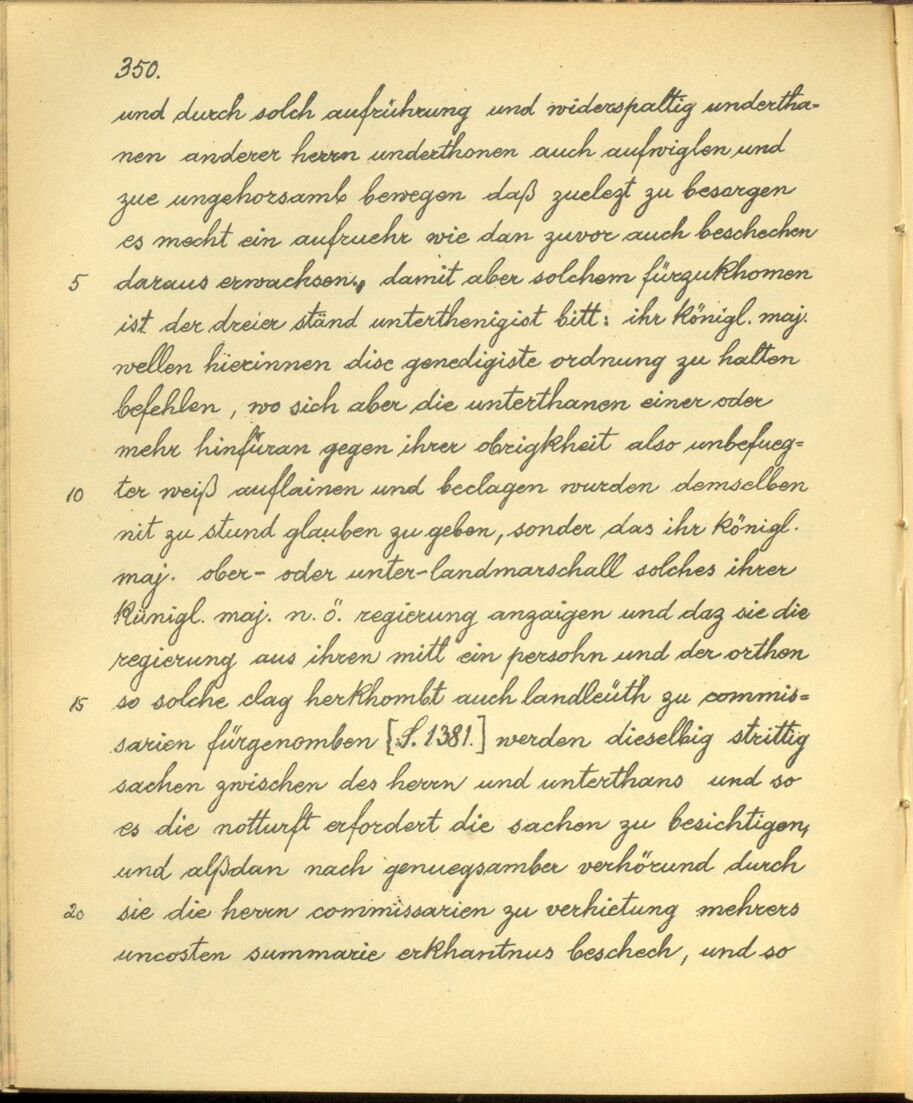 350.
und durch solch aufrührung und widerspaltig undertha=
nen anderer herrn underthonen auch aufwiglen und
zue ungehorsamb bewegen daß zuelezt zu besorgen
es mecht ein aufruehr wie dan zuvor auch beschechen
5 daraus erwachsen, damit aber solchem fürzukhomen
ist der dreier ständ unterthenigist bitt: ihr königl. maj.
wellen hierinnen dise genedigiste ordnung zu halten
befehlen, wo sich aber die unterthanen einer oder
mehr hinfüran gegen ihrer obrigkheit also unbefueg=
10 ter weiß auflainen und beclagen wurden demselben
nit zu stund glauben zu geben, sonder das ihr königl.
maj. ober- oder unter-landmarschall solches ihrer
künigl. maj. n. ö. regierung anzaigen und daz sie die
regierung aus ihren mitl ein persohn und der orthen
15 so solche clag herkhombt auch landleüth zu commis=
sarien fürgenomben [S. 1381.] werden dieselbig strittig
sachen zwischen des herrn und unterthans und so
es die notturft erfordert die sachen zu besichtigen,
und alßdan nach genuegsamber verhörund durch
20 sie die herrn commissarien zu verhietung mehrers
uncosten summarie erkhantnus beschech, und so